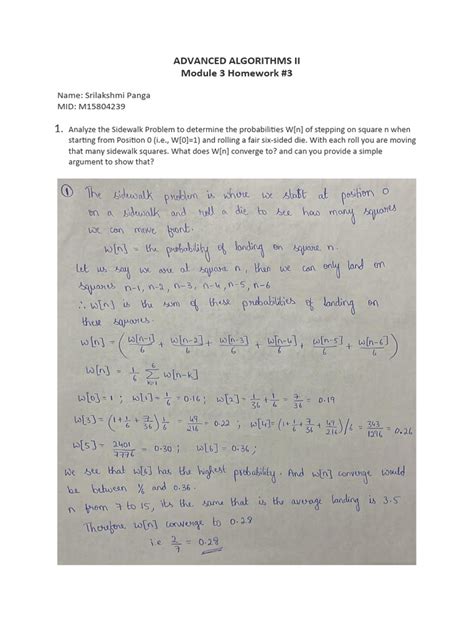 ADVANCED ALGORITHMS II
Module 3 Homework #3
Name: Srilakshmi Panga
MID: M15804239
1. Analyze the Sidewalk Problem to determine the probabilities W[n] of stepping on square n when
starting from Position 0 (i.e., W[0]=1) and rolling a fair six-sided die. With each roll you are moving
that many sidewalk squares. What does W[n] converge to? and can you provide a simple
argument to show that?
① The sidewalk problem is where we start at position 0
on a sidewalk and roll a die to see how many squares
we can move front.
W[n] = the probability of landing on square n.
Let us say we are at square n, then we can only land on
squares n-1, n-2, n-3, n-4, n-5, n-6
∴ W[n] is the sum of these probabilities of landing on
these squares.
W[n] = (W[n-1]/6 + W[n-2]/6 + W[n-3]/6 + W[n-4]/6 + W[n-5]/6 + W[n-6]/6)
W[n] = 1/6 6∑k=1 W[n-k]
W[0] = 1 ; W[1] = 1/6 = 0.16 ; W[2] = 1/36 + 1/6 = 7/36 = 0.19
W[3] = (1 + 1/6 + 7/36)1/6 = 49/216 = 0.22 ; W[4] = (1 + 1/6 + 7/36 + 49/216)/6 = 343/1296 = 0.26
W[5] = 2401/7776 = 0.30 ; W[6] = 0.36 ;
We see that W[6] has the highest probability. And W[n] converge would
be between 1/6 and 0.36.
n from 7 to 15, its the same that is the average landing is 3.5
Therefore W[n] converge to 0.28
i.e 2/7 = 0.28